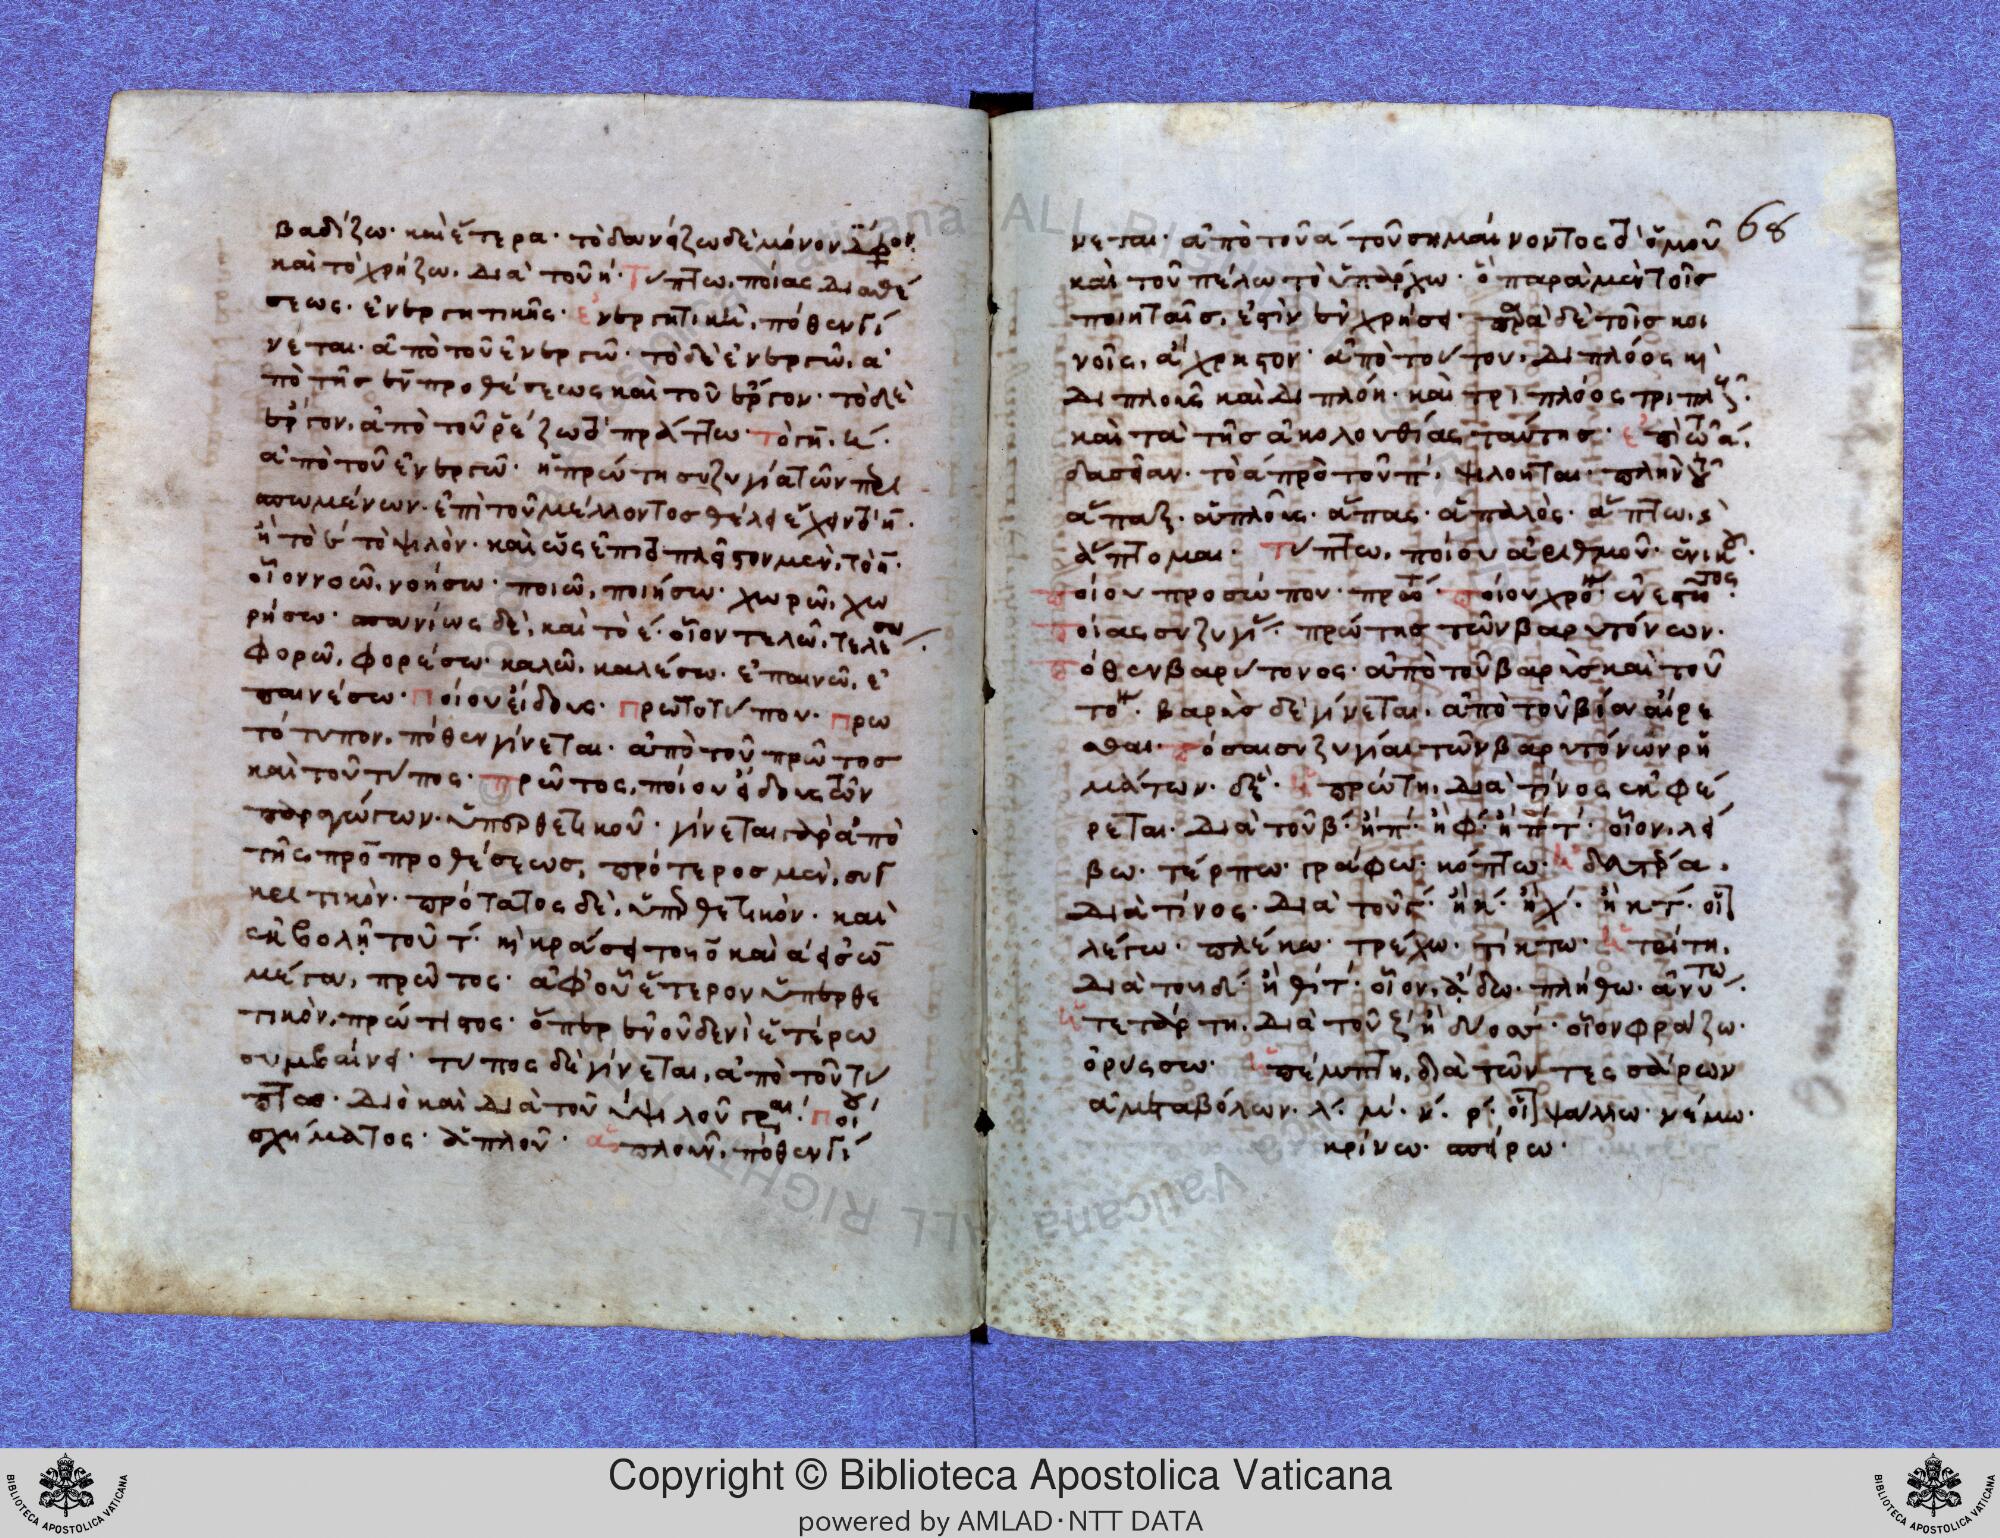 βαδίζω· καὶ ἕτερα· τὸ δανείζω δὲ μόνον
καὶ τὸ χρήζω. διὰ τοῦ η· τύπτω, ποίας διαθέ
σεως· ἐνεργητικῆς· ἐνεργητικὴ, πόθεν γί
νεται· ἀπὸ τοῦ ἐνεργῶ· τὸ δὲ ἐνεργῶ, ἀ
πὸ τῆς ἐν προθέσεως καὶ τοῦ ἔργον· τὸ δὲ
ἔργον, ἀπὸ τοῦ ῥέζω τὸ πράττω· τὸ γη.
ἀπὸ τοῦ ἐνεργῶ· ἡ πρώτη συζυγία τῶν περι
σπωμένων· ἐπὶ τοῦ μέλλοντος θέλει ἔχειν τὸ η·
ἢ τὸ ε τὸ ψιλὸν· καὶ ὡς ἐπὶ τὸ πλεῖστον μὲν, τὸ η·
οἷον νοῶ, νοήσω· ποιῶ, ποιήσω· χωρῶ, χω
ρήσω· σπανίως δὲ, καὶ τὸ ε· οἷον τελῶ, τελέσω·
φορῶ, φορέσω· καλῶ, καλέσω· ἐπαινῶ, ἐ
παινέσω· ποίου εἴδους· πρωτοτύπου· πρω
τότυπον, πόθεν γίνεται· ἀπὸ τοῦ πρῶτος
καὶ τοῦ τύπος· πρῶτος, ποίου εἴδους τῶν
παραγώγων· ὑπερθετικοῦ· γίνεται γὰρ ἀπὸ
τῆς πρὸ προθέσεως, πρότερος μὲν, συγ
κριτικὸν· πρότατος δὲ, ὑπερθετικόν· καὶ
ἐκβολῇ τοῦ τ· καὶ κράσει τοῦ ο καὶ α εἰς ω
μέγα, πρῶτος· ἀφ' οὗ ἕτερον ὑπερθε
τικὸν, πρώτιστος· ὅπερ ἐν οὐδενὶ ἑτέρω
συμβαίνει· τύπος δὲ γίνεται, ἀπὸ τοῦ τύ
πτω· διὸ καὶ διὰ τοῦ ὑψιλοῦ γρ· ποίου
σχήματος· ἁπλοῦ· ἁπλοῦν, πόθεν γί
68
νεται· ἀπὸ τοῦ α τοῦ σημαίνοντος τὸ ὁμοῦ
καὶ τοῦ πέλω τὸ ὑπάρχω· ὃ παρὰ μὲν τοῖς
ποιηταῖς, ἐστὶν ἐν χρήσει· παρὰ δὲ τοῖς κοι
νοῖς, ἄχρηστον· ἀπὸ τούτου, διπλόος καὶ
διπλοῦς καὶ διπλόη· καὶ τριπλόος τριπλοῦς·
καὶ τὰ τῆς ἀκολουθίας ταύτης·
δασεῖαν· τὸ α πρὸ τοῦ π, ψιλοῦται· πλὴν τοῦ
ἅπαξ· ἁπλοῦς· ἅπας· ἁπαλὸς· ἅπτω· καὶ
ἅπτομαι· τύπτω, ποίου ἀριθμοῦ· ἑνικοῦ·
ποίου προσώπου· πρώτου· ποίου χρόνου· ἐνεστῶτος·
ποίας συζυγίας· πρώτης τῶν βαρυτόνων·
πόθεν βαρύτονος· ἀπὸ τοῦ βαρὺς καὶ τοῦ
τόνος· βαρὺς δὲ γίνεται, ἀπὸ τοῦ βίαν αἴρε
σθαι· πόσαι συζυγίαι τῶν βαρυτόνων ῥη
μάτων· ἕξ· ἡ πρώτη, διὰ τίνος ἐκφέ
ρεται· διὰ τοῦ β· ἢ π· ἢ φ· ἢ πτ· οἷον, λεί
βω· τέρπω· γράφω· κόπτω· ἡ δευτέρα,
διὰ τίνος· διὰ τοῦ γ· ἢ κ· ἢ χ· ἢ κτ· οἷον
λέγω· πλέκω· τρέχω· τίκτω· ἡ τρίτη,
διὰ τοῦ δ· ἢ θ· ἢ τ· οἷον, ᾄδω· πλήθω· ἀνύτω·
ἡ τετάρτη, διὰ τοῦ ζ ἢ δύο σσ· οἷον φράζω·
ὀρύσσω· ἡ πέμπτη, διὰ τῶν τεσσάρων
ἀμεταβόλων· λ· μ· ν· ρ· οἷον ψάλλω· νέμω·
κρίνω· σπείρω·
Copyright © Biblioteca Apostolica Vaticana
powered by AMLAD·NTT DATA